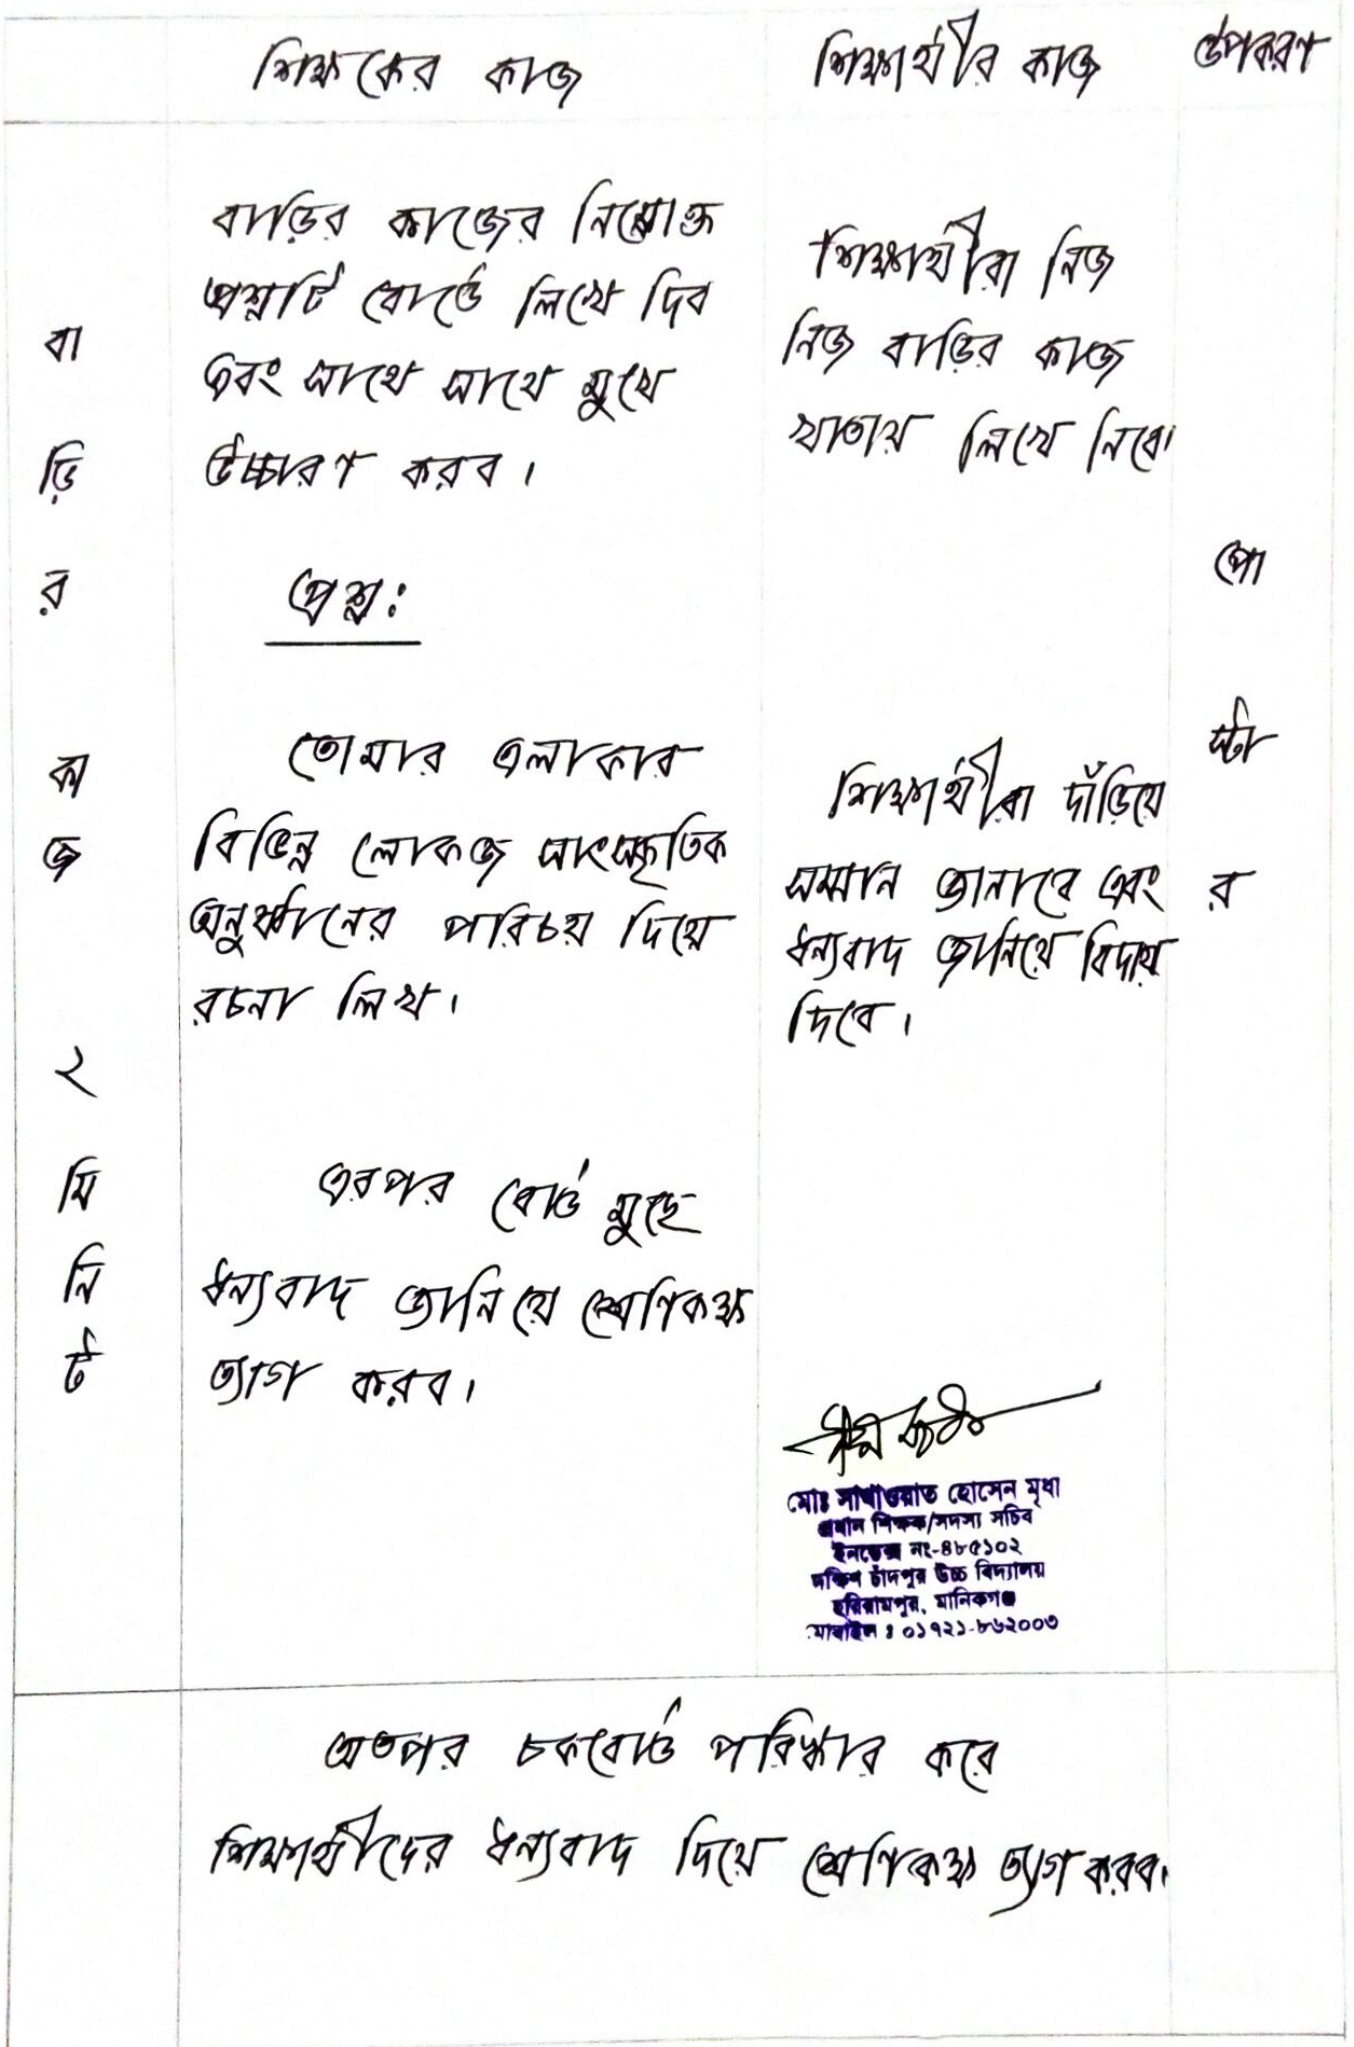 শিক্ষকের কাজ
শিক্ষার্থীর কাজ
উপকরণ
বা
ড়ি
র
কা
জ
২
মি
নি
ট
বাড়ির কাজের নিম্নোক্ত
প্রশ্নটি বোর্ডে লিখে দিব
এবং সাথে সাথে মুখে
উচ্চারণ করব।
প্রশ্ন:
তোমার এলাকার
বিভিন্ন লোকজ সাংস্কৃতিক
অনুষ্ঠানের পরিচয় দিয়ে
রচনা লিখ।
এরপর বোর্ড মুছে
ধন্যবাদ জানিয়ে শ্রেণিকক্ষ
ত্যাগ করব।
শিক্ষার্থীরা নিজ
নিজ বাড়ির কাজ
খাতায় লিখে নিবে।
শিক্ষার্থীরা দাঁড়িয়ে
সম্মান জানাবে এবং
ধন্যবাদ জানিয়ে বিদায়
দিবে।
মোঃ সাখাওয়াত হোসেন মৃধা
প্রধান শিক্ষক/সদস্য সচিব
ইনডেক্স নং-৪৮৫১০২
দক্ষিণ চাঁদপুর উচ্চ বিদ্যালয়
হরিরামপুর, মানিকগঞ্জ
মোবাইল : ০১৭২১-৮৬২০০৩
পো
স্টা
র
অতপর চকবোর্ড পরিস্কার করে
শিক্ষার্থীদের ধন্যবাদ দিয়ে শ্রেণিকক্ষ ত্যাগ করব।